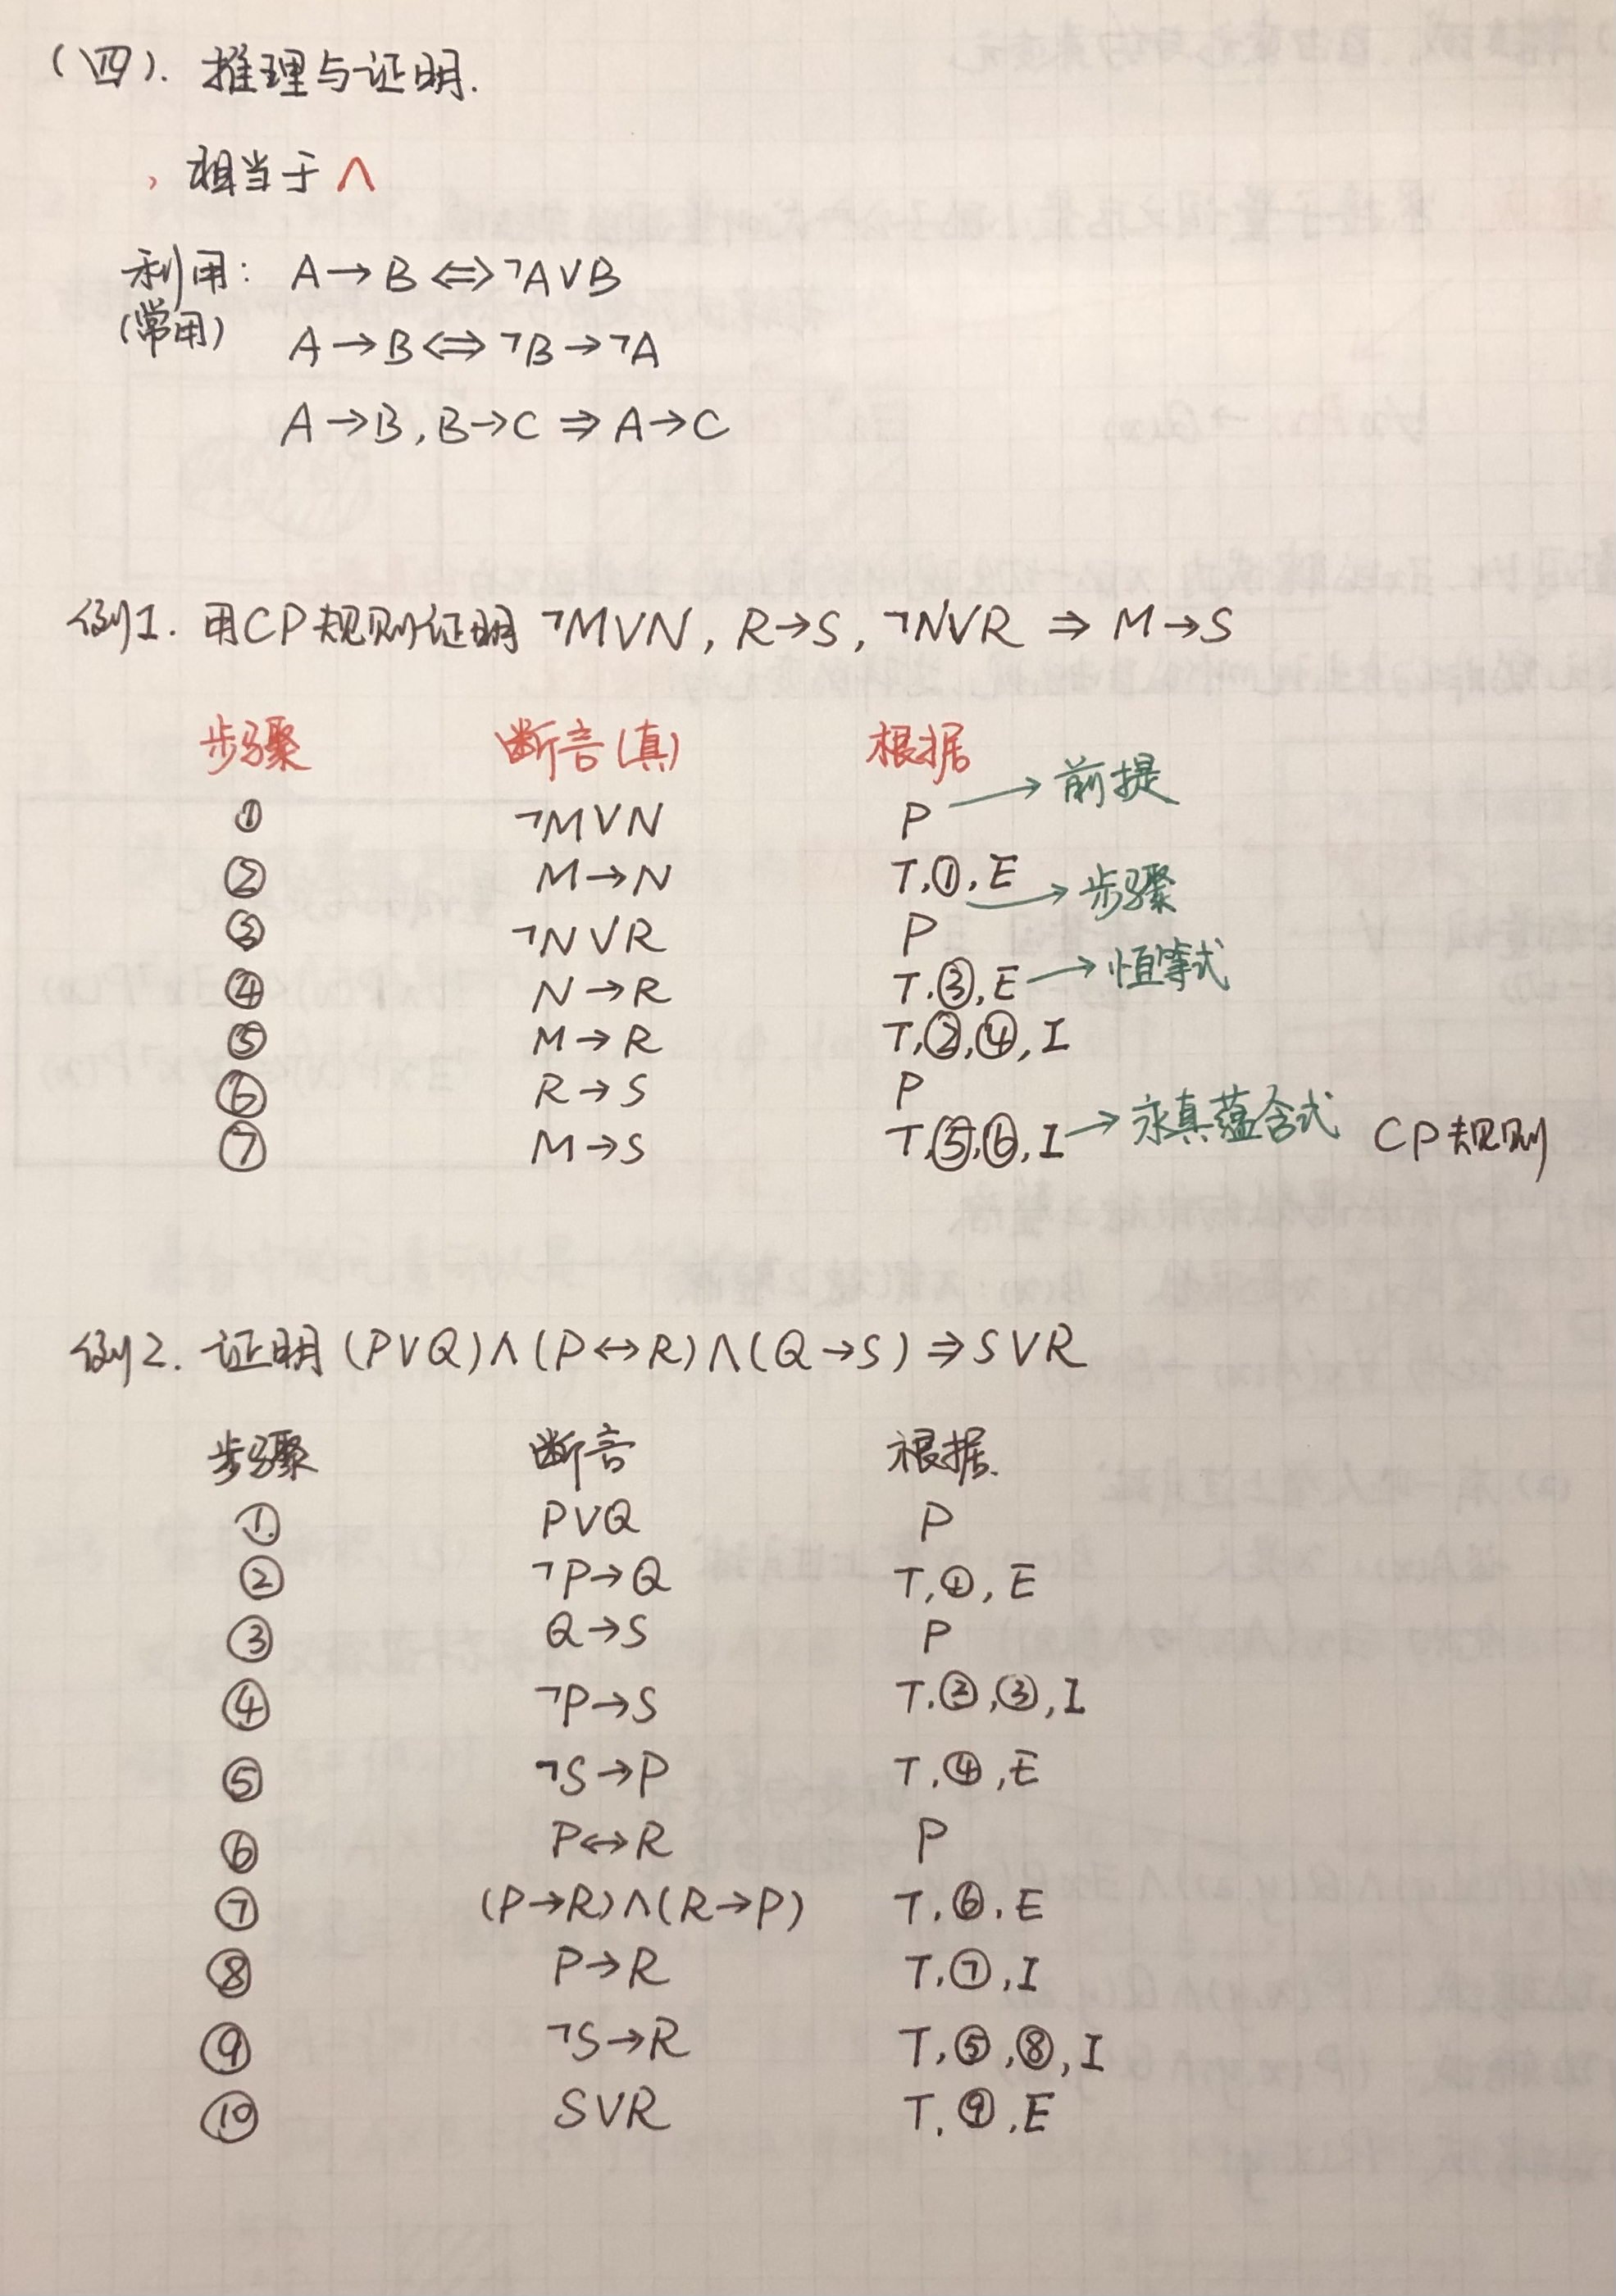 (四). 推理与证明.
, 相当于 ∧
利用: A→B⇔¬A∨B
(常用) A→B⇔¬B→¬A
A→B,B→C⇒A→C
例1. 用CP规则证明 ¬M∨N, R→S, ¬N∨R ⇒ M→S
步骤 断言(真) 根据
① ¬M∨N P →前提
② M→N T,①,E →步骤
③ ¬N∨R P
④ N→R T.③,E →恒等式
⑤ M→R T,②,④,I
⑥ R→S P
⑦ M→S T,⑤,⑥,I→永真蕴含式 CP规则
例2. 证明 (P∨Q)∧(P↔R)∧(Q→S)⇒S∨R
步骤 断言 根据.
① P∨Q P
② ¬P→Q T,①,E
③ Q→S P
④ ¬P→S T.②,③,I
⑤ ¬S→P T.④,E
⑥ P↔R P
⑦ (P→R)∧(R→P) T.⑥.E
⑧ P→R T.⑦,I
⑨ ¬S→R T,⑤,⑧,I
⑩ S∨R T.⑨.E